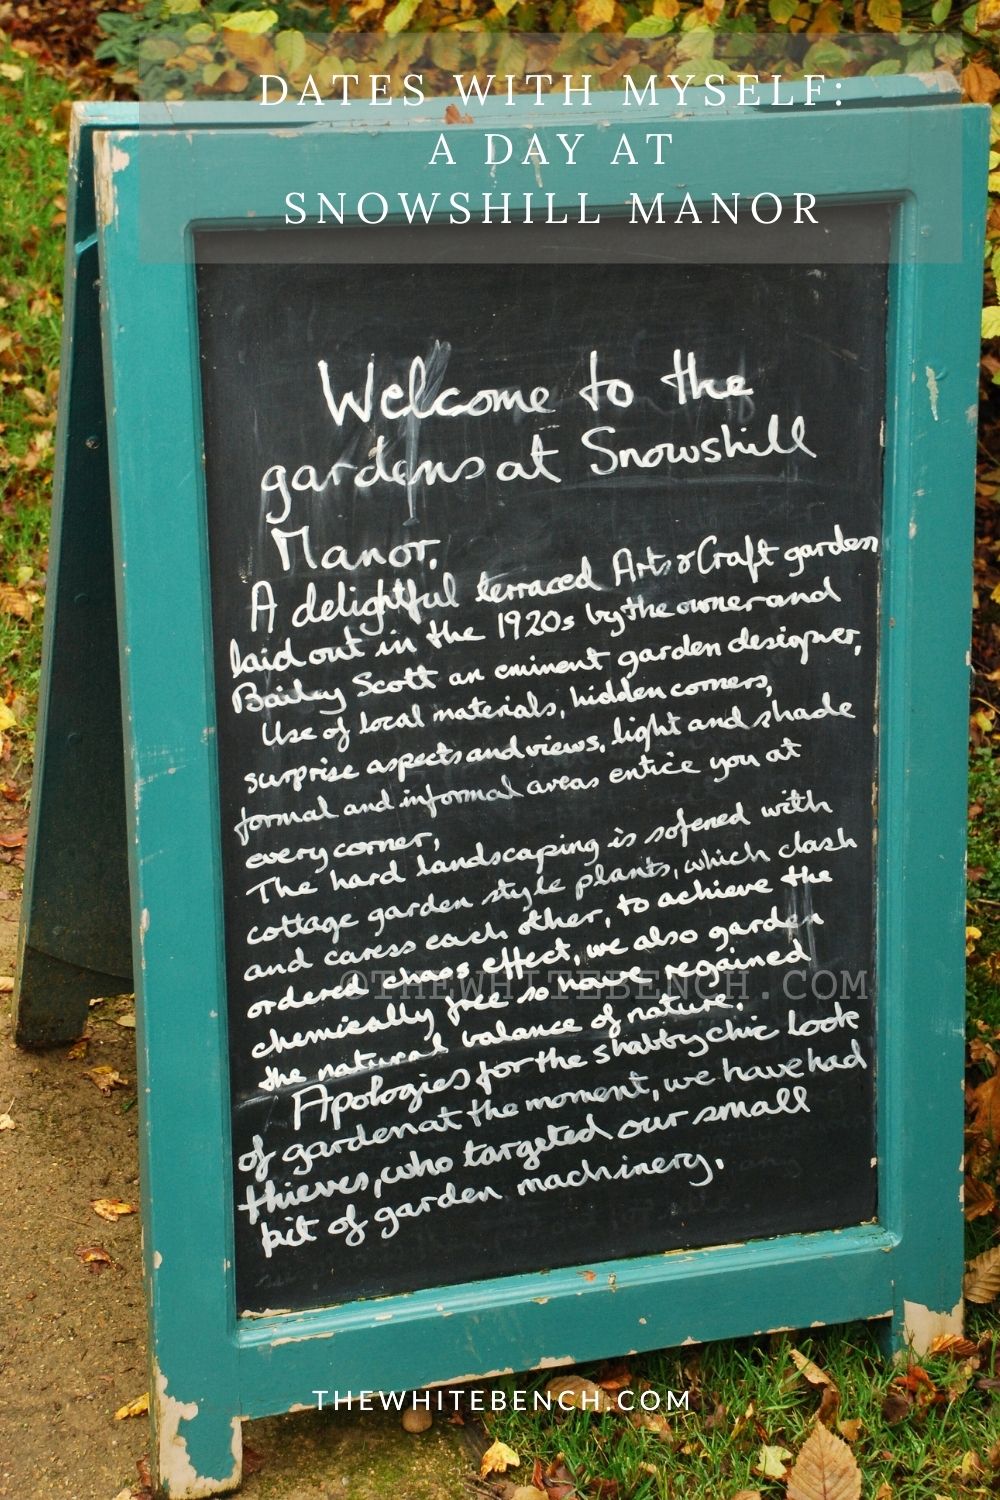 DATES WITH MYSELF:
A DAY AT
SNOWSHILL MANOR
Welcome to the
gardens at Snowshill
Manor.
A delightful terraced Arts & Craft garden
laid out in the 1920s by the owner and
Bailey Scott an eminent garden designer,
Use of local materials, hidden corners,
surprise aspects and views, light and shade
formal and informal areas entice you at
every corner,
The hard landscaping is sofened with
cottage garden style plants, which clash
and caress each other, to achieve the
ordered chaos effect, we also garden
©THEWHITEBENCH.COM
chemically free so have regained
the natural balance of nature.
Apologies for the shabby chic look
of garden at the moment, we have had
thieves, who targeted our small
kit of garden machinery.
THEWHITEBENCH.COM